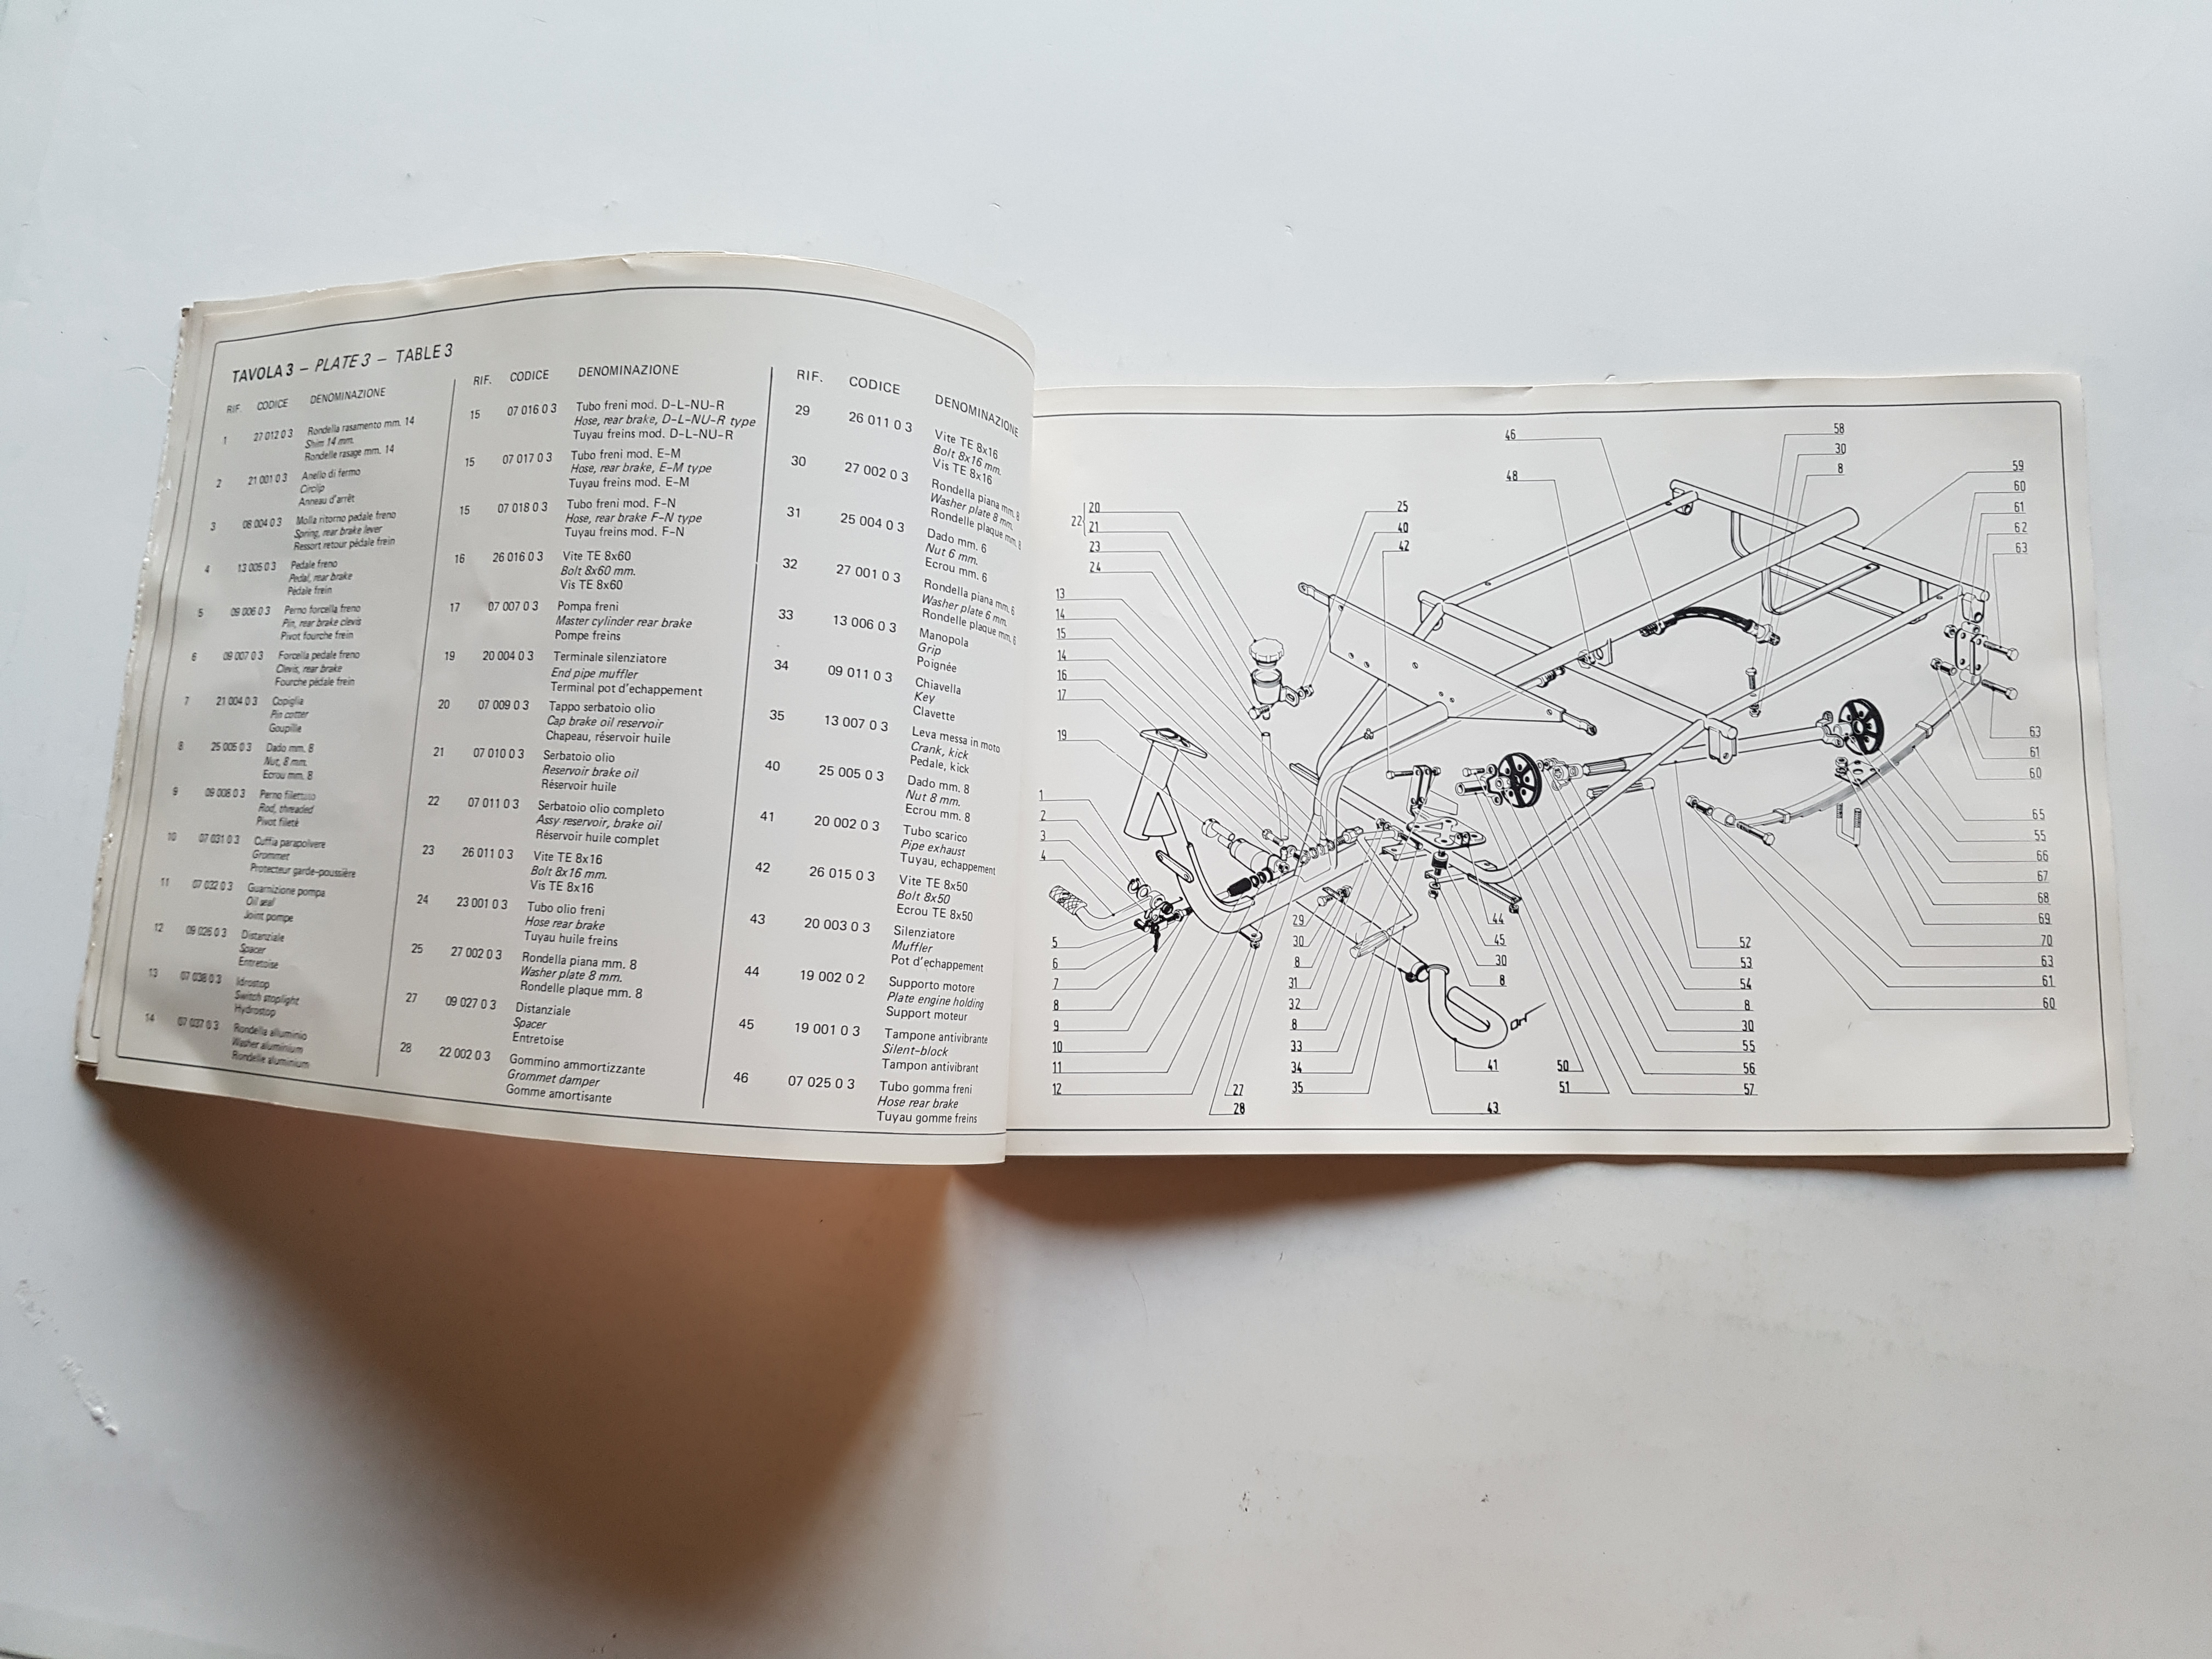 TAVOLA 3 – PLATE 3 – TABLE 3
RIF. CODICE DENOMINAZIONE
1 27 012 0 3 Rondella rasamento mm. 14
Shim 14 mm.
Rondelle rasage mm. 14
2 21 001 0 3 Anello di fermo
Circlip
Anneau d'arrêt
3 08 004 0 3 Molla ritorno pedale freno
Spring, rear brake lever
Ressort retour pédale frein
4 13 005 0 3 Pedale freno
Pedal, rear brake
Pédale frein
5 09 006 0 3 Perno forcella freno
Pin, rear brake clevis
Pivot fourche frein
6 09 007 0 3 Forcella pedale freno
Clevis, rear brake
Fourche pédale frein
7 21 004 0 3 Copiglia
Pin cotter
Goupille
8 25 005 0 3 Dado mm. 8
Nut, 8 mm.
Ecrou mm. 8
9 09 008 0 3 Perno filettato
Rod, threaded
Pivot fileté
10 07 031 0 3 Cuffia parapolvere
Grommet
Protecteur garde-poussière
11 07 032 0 3 Guarnizione pompa
Oil seal
Joint pompe
12 09 026 0 3 Distanziale
Spacer
Entretoise
13 07 036 0 3 Idrostop
Switch stoplight
Hydrostop
14 07 037 0 3 Rondella alluminio
Washer aluminium
Rondelle aluminium
RIF. CODICE DENOMINAZIONE
15 07 016 0 3 Tubo freni mod. D–L–NU–R
Hose, rear brake, D–L–NU–R type
Tuyau freins mod. D–L–NU–R
15 07 017 0 3 Tubo freni mod. E–M
Hose, rear brake, E–M type
Tuyau freins mod. E–M
15 07 018 0 3 Tubo freni mod. F–N
Hose, rear brake F–N type
Tuyau freins mod. F–N
16 26 016 0 3 Vite TE 8x60
Bolt 8x60 mm.
Vis TE 8x60
17 07 007 0 3 Pompa freni
Master cylinder rear brake
Pompe freins
19 20 004 0 3 Terminale silenziatore
End pipe muffler
Terminal pot d'echappement
20 07 009 0 3 Tappo serbatoio olio
Cap brake oil reservoir
Chapeau, réservoir huile
21 07 010 0 3 Serbatoio olio
Reservoir brake oil
Réservoir huile
22 07 011 0 3 Serbatoio olio completo
Assy reservoir, brake oil
Réservoir huile complet
23 26 011 0 3 Vite TE 8x16
Bolt 8x16 mm.
Vis TE 8x16
24 23 001 0 3 Tubo olio freni
Hose rear brake
Tuyau huile freins
25 27 002 0 3 Rondella piana mm. 8
Washer plate 8 mm.
Rondelle plaque mm. 8
27 09 027 0 3 Distanziale
Spacer
Entretoise
28 22 002 0 3 Gommino ammortizzante
Grommet damper
Gomme amortisante
RIF. CODICE DENOMINAZIONE
29 26 011 0 3 Vite TE 8x16
Bolt 8x16 mm.
Vis TE 8x16
30 27 002 0 3 Rondella piana mm. 8
Washer plate 8 mm.
Rondelle plaque mm. 8
31 25 004 0 3 Dado mm. 6
Nut 6 mm.
Ecrou mm. 6
32 27 001 0 3 Rondella piana mm. 6
Washer plate 6 mm.
Rondelle plaque mm. 6
33 13 006 0 3 Manopola
Grip
Poignée
34 09 011 0 3 Chiavella
Key
Clavette
35 13 007 0 3 Leva messa in moto
Crank, kick
Pedale, kick
40 25 005 0 3 Dado mm. 8
Nut 8 mm.
Ecrou mm. 8
41 20 002 0 3 Tubo scarico
Pipe exhaust
Tuyau, echappement
42 26 015 0 3 Vite TE 8x50
Bolt 8x50
Ecrou TE 8x50
43 20 003 0 3 Silenziatore
Muffler
Pot d'echappement
44 19 002 0 2 Supporto motore
Plate engine holding
Support moteur
45 19 001 0 3 Tampone antivibrante
Silent–block
Tampon antivibrant
46 07 025 0 3 Tubo gomma freni
Hose rear brake
Tuyau gomme freins
20
22 21
23
24
13
14
15
14
16
17
19
1
2
3
4
5
6
7
8
9
10
11
12
25
40
42
27
28
29
30
8
31
32
8
33
34
35
46
48
44
45
30
8
41
43
50
51
58
30
8
52
53
54
8
30
55
56
57
59
60
61
62
63
63
61
60
65
55
66
67
68
69
70
63
61
60